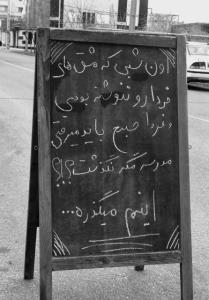 اون شبی که مشق‌های
فردا رو ننوشته بودی
و فردا صبح باید میرفتی
مدرسه مگه نگذشت؟!؟
اینم میگذره...